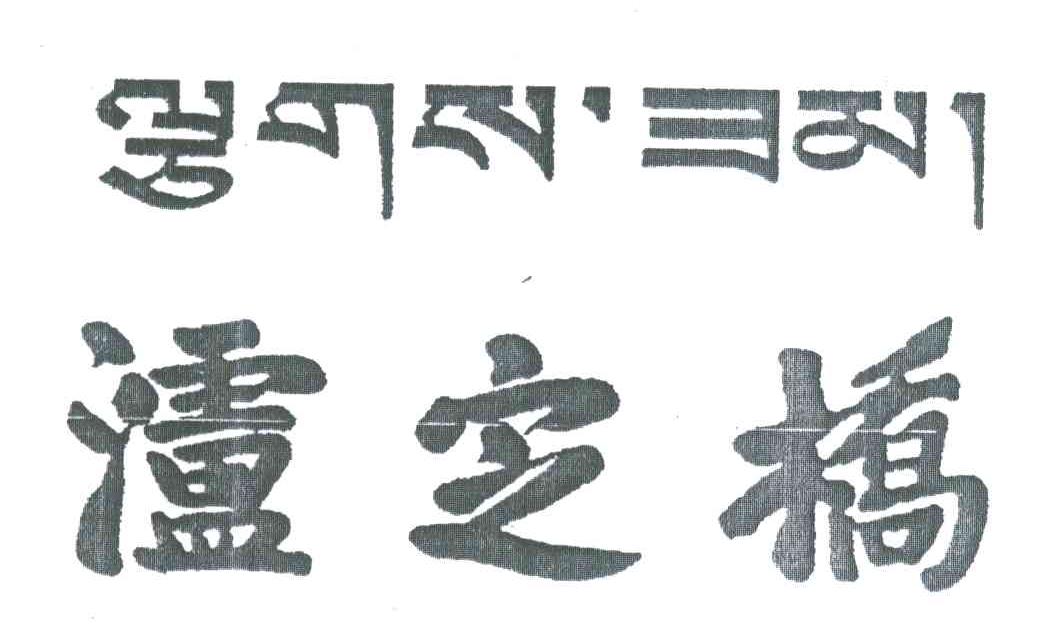 ལྕགས་ཟམ།
瀘定橋